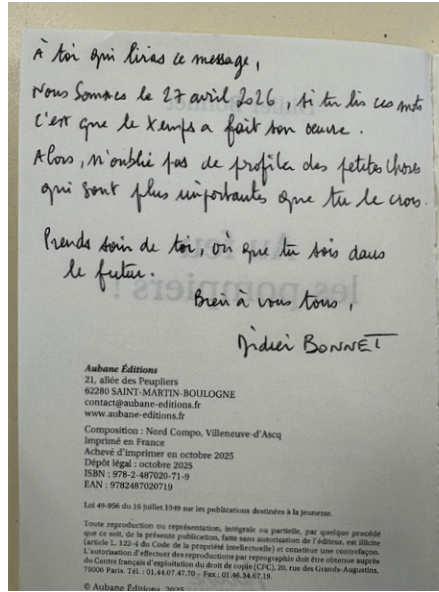 À toi qui liras ce message,
Nous sommes le 27 avril 2026, si tu lis ces mots
c'est que le temps a fait son oeuvre.
Alors, n'oublie pas de profiter des petites choses
qui sont plus importantes que tu le crois.
Prends soin de toi, où que tu sois dans
le futur.
Bien à vous tous,
Didier BONNET
Au feu
les pompiers !
Aubane Éditions
21, allée des Peupliers
62280 SAINT-MARTIN-BOULOGNE
contact@aubane-editions.fr
www.aubane-editions.fr
Composition : Nord Compo, Villeneuve-d'Ascq
Imprimé en France
Achevé d'imprimer en octobre 2025
Dépôt légal : octobre 2025
ISBN : 978-2-487020-71-9
EAN : 9782487020719
Loi 49-956 du 16 juillet 1949 sur les publications destinées à la jeunesse.
Toute reproduction ou représentation, intégrale ou partielle, par quelque procédé
que ce soit, de la présente publication, faite sans autorisation de l'éditeur, est illicite
(article L. 122-4 du Code de la propriété intellectuelle) et constitue une contrefaçon.
L'autorisation d'effectuer des reproductions par reprographie doit être obtenue auprès
du Centre français d'exploitation du droit de copie (CFC), 20, rue des Grands-Augustins,
75006 Paris. Tél. : 01.44.07.47.70 – Fax : 01.46.34.67.19.
© Aubane Éditions, 2025